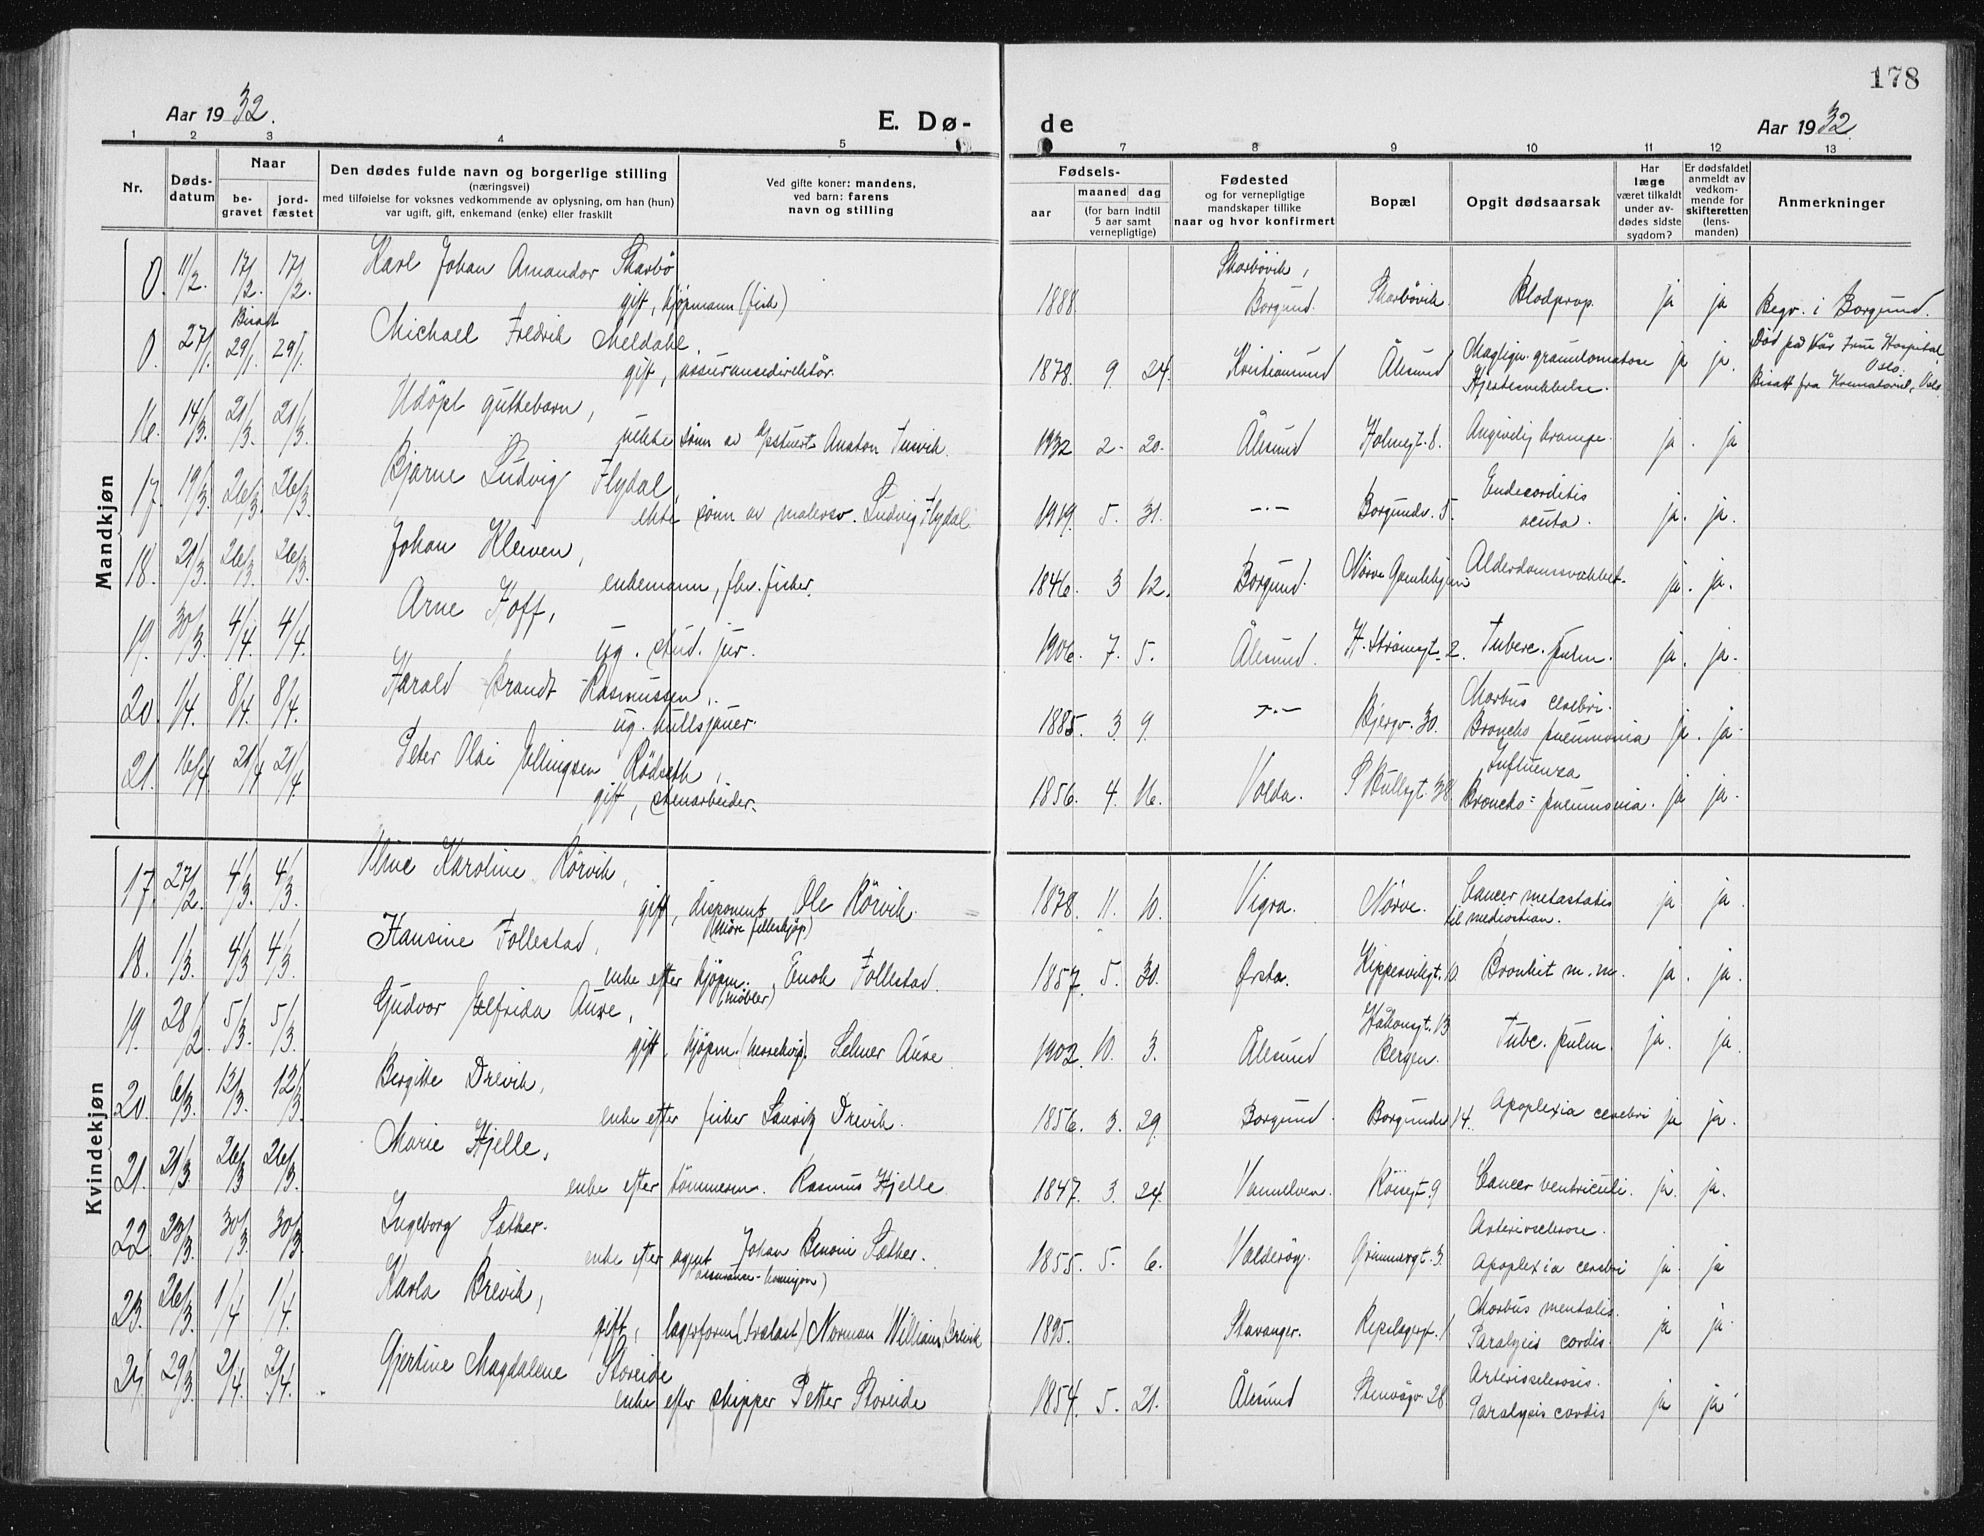 178
Aar 1932.
E. Dø-
de
Aar 1932.
1 2 3 4 5 7 8 9 10 11 12 13
Nr.
Døds-
datum
Naar
be-
gravet
jord-
fæstet
Den dødes fulde navn og borgerlige stilling
(næringsvei)
med tilføielse for voksnes vedkommende av oplysning, om han (hun)
var ugift, gift, enkemand (enke) eller fraskilt
Ved gifte koner: mandens,
ved barn: farens
navn og stilling
Fødsels-
aar
maaned dag
(for barn indtil
5 aar samt
vernepligtige)
Fødested
og for vernepligtige
mandskaper tillike
naar og hvor konfirmert
Bopæl
Opgit dødsaarsak
Har
læge
været tilkaldt
under av-
dødes sidste
sygdom?
Er dødsfaldet
anmeldt av
vedkom-
mende for
skifteretten
(lens-
manden)
Anmerkninger
Mandkjøn
0. 11/2. 17/2. 17/2. Karl Johan Amandar Skarbö
gift, kjöpmann (fisk)
1888. Skarbövik,
Borgund. Skarbövik. Blodprop. ja ja Begr. i Borgund.
0. 27/1. Bisatt 29/1. 29/1. Michael Fredrik Meldahl,
gift, assuransedirektör.
1878. 9. 24. Kristiansund Ålesund Malign granulomatose
Hjertesvekkelse. ja ja. Död på Vår Frue Hospital
Oslo.
Bisatt fra Krematoriet, Oslo
16. 14/3. 21/3. 21/3. Udöpt guttebarn,
uekte sönn av
1932 2. 20. Ålesund Holmegt. 8. Angivelig krampe. ja. ja
17. 19/3. 26/3. 26/3. Bjarne Ludvig Flydal,
ekte sönn av malersv. Ludvig Flydal
1919. 5. 31. —·— Borgundv. 5. Endocarditis
acuta. ja. ja.
18. 21/3. 26/3. 26/3. Johan Kleiven,
enkemann, fhv. fisker.
1846. 3 12. Borgund. Nörve Gamlehjem Alderdomssvekket. ja. ja.
19. 30/3. 4/4. 4/4. Arne Hoff,
ug. stud. jur.
1906. 7. 5. Ålesund. H. Strömsgt. 2. Tuberc. pulm. ja. ja.
20. 1/4. 8/4. 8/4. Harald Brandt Rasmussen,
ug. kullsjauer.
1885. 3. 9. —·— Bjergv. 30. Morbus cerebri.
Broncho pneumonia ja. ja.
21. 16/4. 21/4 21/4. Peter Olai Ellingsen Rödseth,
gift, stenarbeider.
1856. 4. 16. Volda. S Bullsgt. 38 Influenza
Broncho=pneumonia. ja ja.
Kvindekjøn
17. 27/2. 4/3. 4/3. Karoline Rörvik,
gift, disponent Ole Rörvik.
(Möre felleskjöp)
1878. 11. 10. Vigra. Nörve. Cancer metastatis
til mediastian. ja ja.
18. 1/3. 4/3 4/3. Hansine Follestad,
enke efter kjöpm. Enok Follestad.
(möbler)
1857. 5. 30. Ørsta. Kippervikgt. 10. Bronkit m. m. ja. ja.
19. 28/2. 5/3. 5/3. Gudvor Alfrida Aure,
gift, kjöpm. Selmer Aure
1902. 10. 3. Ålesund Håkonsgt. 13
Bergen. Tubc. pulm. ja. ja.
20. 6/3. 12/3. 12/3. Birgitte Drevik,
enke efter fisker Drevik.
1856. 3. 29. Borgund. Borgundv 14. Apoplexia cerebri ja ja.
21. 21/3. 26/3 26/3. Marie Hjelle,
enke efter tömmerm. Rasmus Hjelle
1847. 3. 24. Vanelven. Röisgt. 9 Cancer ventriculi. ja. ja.
22 23/3. 30/3. 30/3. Ingeborg Sæther.
enke efter agent Johan Benoni Sæther.
1855. 5. 6. Valderöy. Grimmergt. 3. Arteriosclerose.
Apoplexia cerebri ja. ja
23. 26/3. 1/4 1/4. Karla Brevik,
gift, lagerform. (trelast) Norman William Brevik
1895. Stavanger. Repslagergt. 1 Morbus mentalis.
Paralysis cordis. ja ja.
24. 29/3. 2/4. 2/4. Gjertine Magdalene Storeide
enke efter skipper Petter Storeide
1854. 5. 21. Ålesund Stenvågv. 28. Arteriosclerosis.
Paralysis cordis ja ja